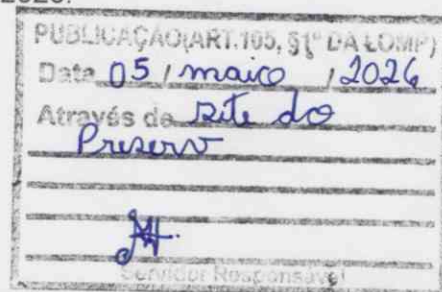 2026.
PUBLICAÇÃO(ART.105, §1º DA LOMP)
Data 05 / maico / 2026
Através de site do
Preserv
Servidor Responsável